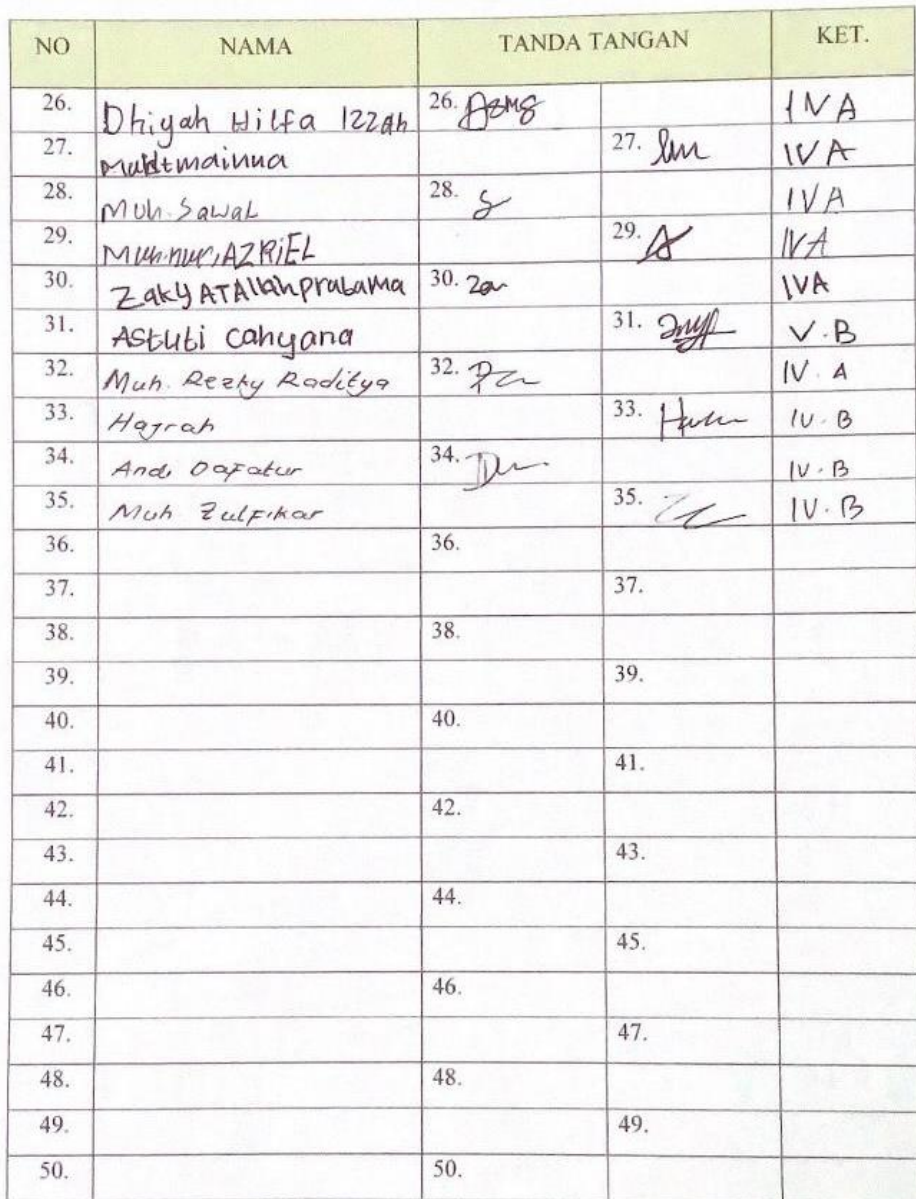 NO NAMA TANDA TANGAN KET.
26. Dhiyah Hilfa Izzah 26. IVA
27. 27. IVA
28. Muh. Sawal 28. IVA
29. Muh.nur, AZRiEL 29. IVA
30. Zaky ATAllah prabama 30. IVA
31. Astuti Cahyana 31. V.B
32. Muh. Rezky Raditya 32. IV. A
33. Hajrah 33. IV. B
34. Andi Dafatur 34. IV. B
35. Muh Zulfikar 35. IV. B
36. 36.
37. 37.
38. 38.
39. 39.
40. 40.
41. 41.
42. 42.
43. 43.
44. 44.
45. 45.
46. 46.
47. 47.
48. 48.
49. 49.
50. 50.